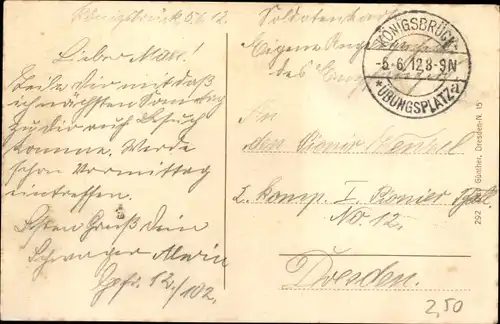 Königsbrück 5.6.12.
Lieber Max!
Teile Dir mit daß
ich nächsten Sonntag
zu Dir auf Besuch
komme. Werde
schon Vormittag
eintreffen.
Besten Gruß dein
Schwager
Gefr. 12./102.
Soldatenkarte
Eigene Angelegenheit
des Empfängers
KÖNIGSBRÜCK
-5.6.12.8-9N
*ÜBUNGSPLATZ a
An
den Pionier
2. Komp. I. Pionier Batl.
No. 12.
Dresden.
292 Günther, Dresden-N. 15
2,50